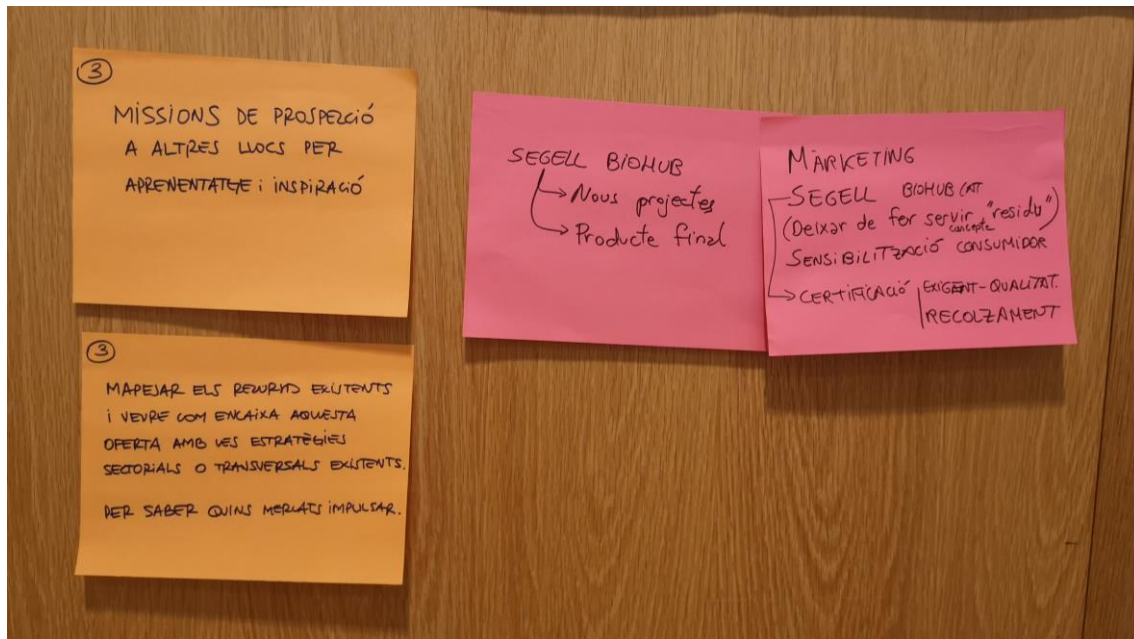 3
MISSIONS DE PROSPECCIÓ
A ALTRES LLOCS PER
APRENENTATGE i INSPIRACIÓ
3
MAPEJAR ELS RECURSOS EXISTENTS
i VEURE COM ENCAIXA AQUESTA
OFERTA AMB LES ESTRATÈGIES
SECTORIALS O TRANSVERSALS EXISTENTS.
PER SABER QUINS MERCATS IMPULSAR.
SEGELL BIOHUB
→ Nous projectes
→ Producte final
MARKETING
SEGELL BIOHUB CAT
(Deixar de fer servir concepte "residu")
SENSIBILITZACIÓ CONSUMIDOR
→ CERTIFICACIÓ EXIGENT-QUALITAT.
RECOLZAMENT